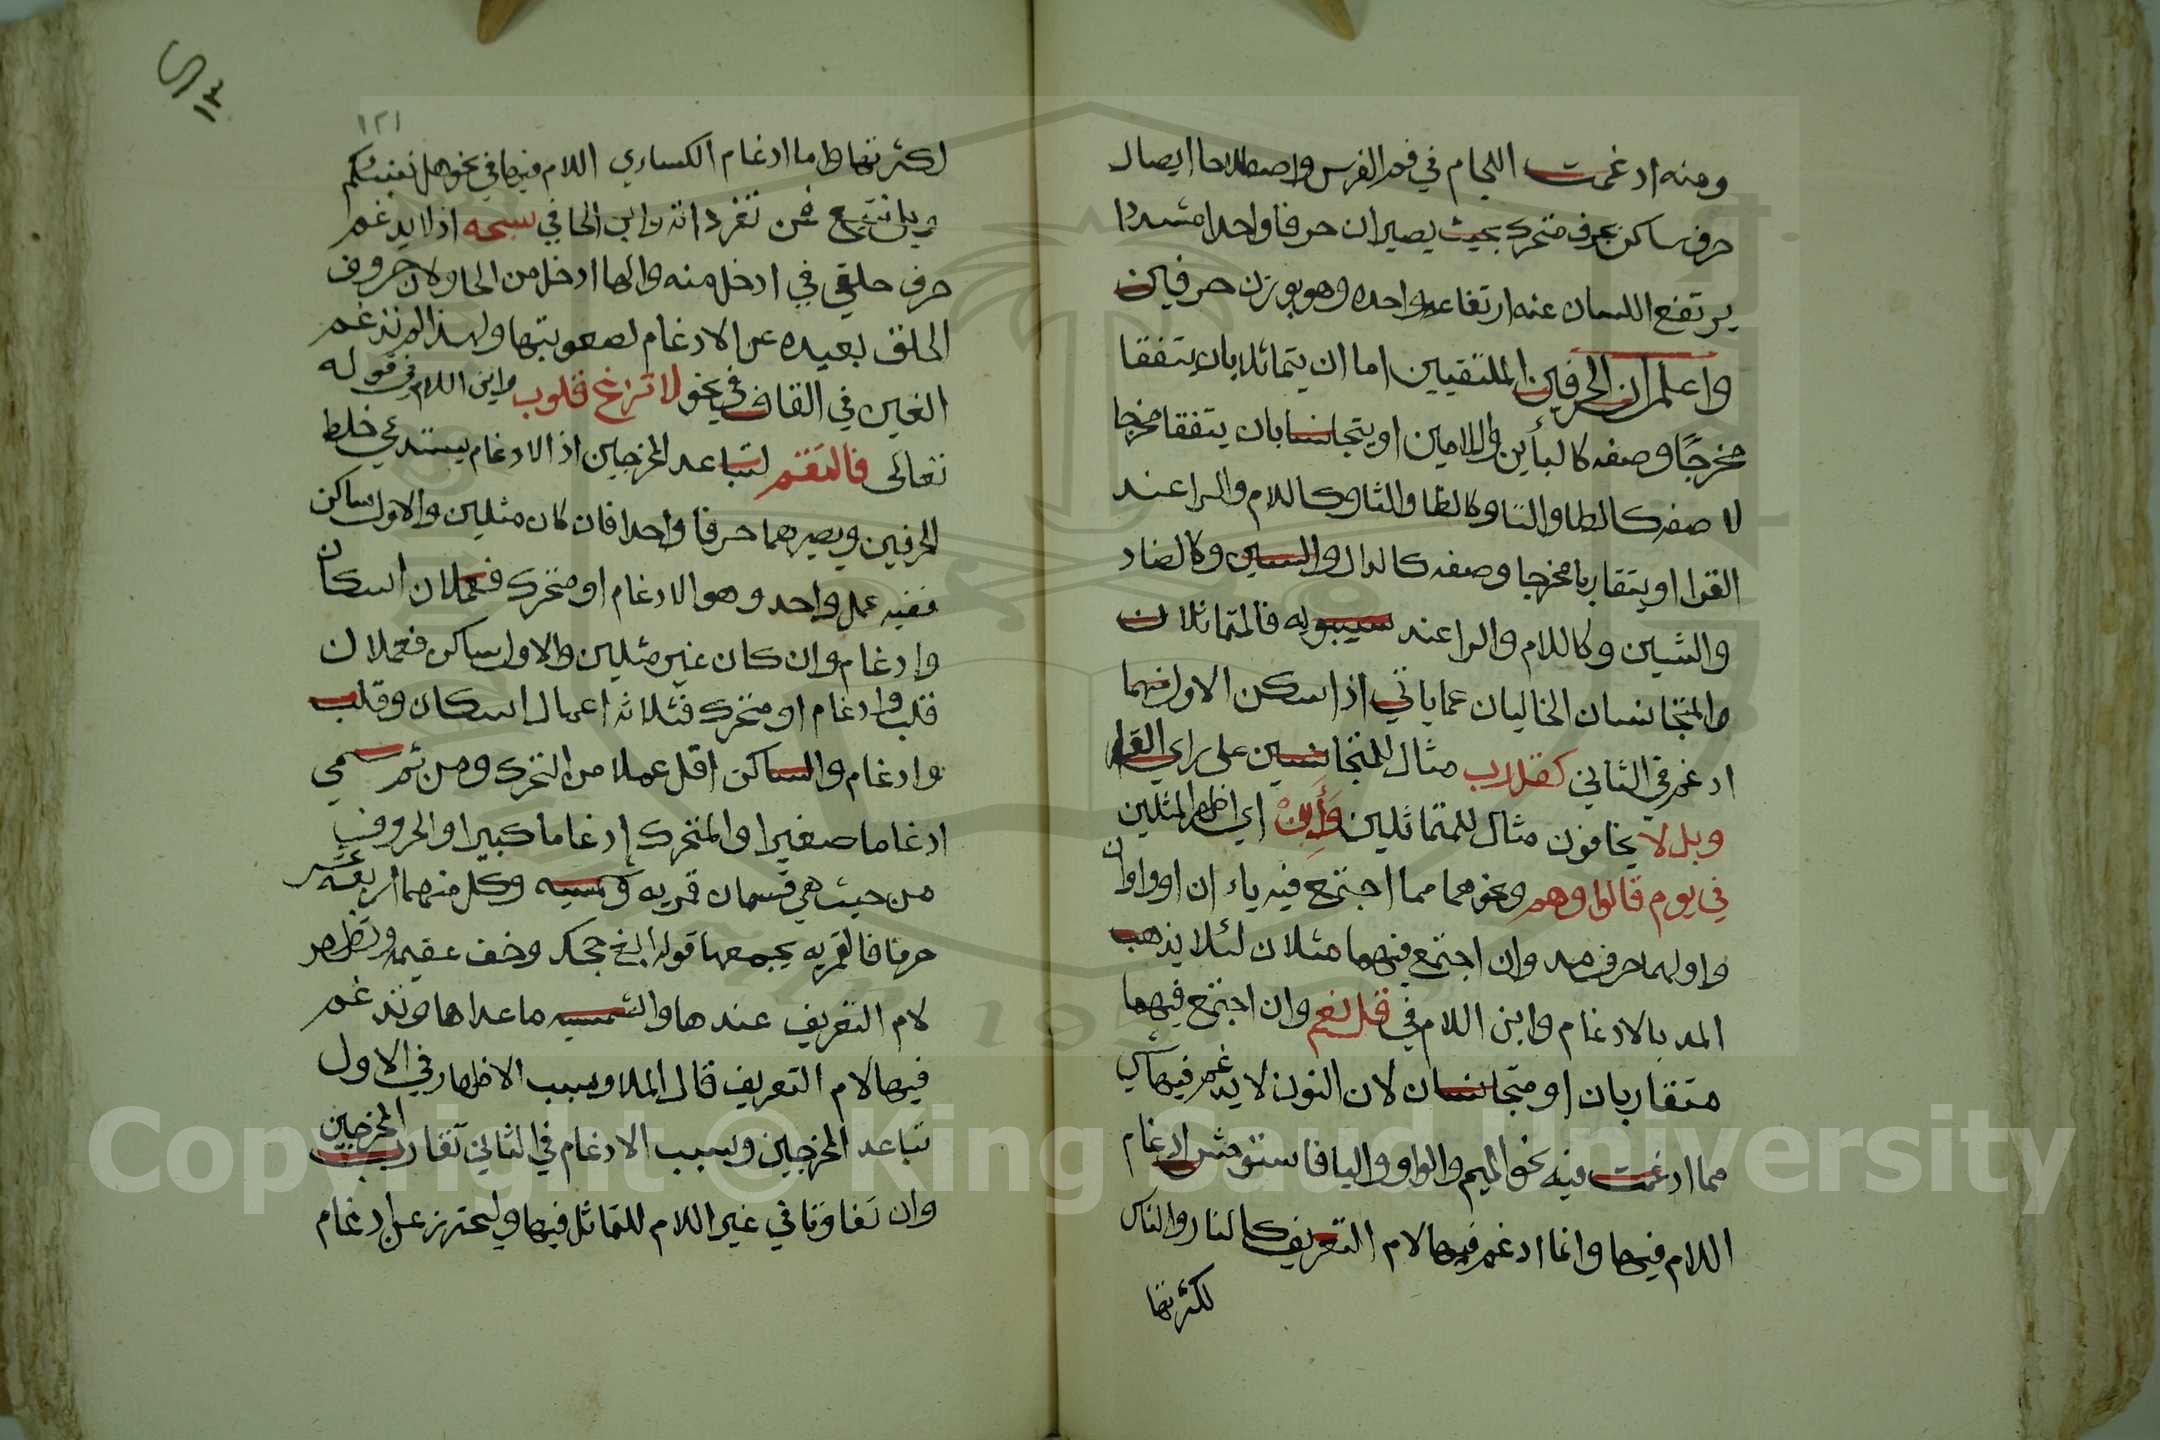 ومنه ادغمت اللجام في فم الفرس واصطلاحا ايصال
حرف ساكن بحرف متحرك بحيث يصيران حرفا واحدا مشددا
يرتفع اللسان عنه ارتفاعه واحده وهو بوزن حرفين
واعلم ان الحرفين الملتقيين اما ان يتماثلا بان يتفقا
مخرجًا وصفه كالبأين واللامين او يتجانسا بان يتفقا مخرجا
لا صفه كالطا والتا وكالظا والثا وكاللام والرا عند
القرا او يتقاربا مخرجا وصفه كالدال والسين وكالضاد
والشين وكاللام والرا عند سيبويه فالمتماثلان
والمتجانسان الخاليان عما ياتي اذا سكن الاول منهما
ادغم في الثاني كقل رب مثال للمتجانسين على راي القرا
وبل لا يخافون مثال للمتماثلين وَأَبِنْ اي اظهر المثلين
في يوم قالوا وهم ونحوهما مما اجتمع فيه ياءان او واوان
واولهما حرف مد وان اجتمع فيهما مثلان لئلا يذهب
المد بالادغام وابن اللام في قل نعم وان اجتمع فيهما
متقاربان او متجانسان لان النون لا يدغم فيها شي
مما ادغمت فيه نحو الميم والواو واليا فاستوحش ادغام
اللام فيها وانما ادغم فيها لام التعريف كالنار والناس
لكثرتها
١٢١
لكثرتها واما ادغام الكساري اللام فيها في نحو هل ننبئكم
وبل نتبع فمن تفرداته وابن الحا في سبحه اذ لا يدغم
حرف حلقي في ادخل منه والها ادخل من الحا ولان حروف
الحلق بعيده عن الادغام لصعوبتها ولهذا لم تدغم
الغين في القاف في نحو لا تزغ قلوب وابن اللام في قوله
تعالى فالتقم لتباعد المخرجين اذ الادغام يستدعي خلط
الحرفين ويصيرهما حرفا واحدا فان كان مثلين والاول ساكن
ففيه عمل واحد وهو الادغام او متحرك فعملان اسكان
وادغام وان كان غير مثلين والاول ساكن فعملان
قلب وادغام او متحرك فثلاثه اعمال اسكان وقلب
وادغام والساكن اقل عملا من المتحرك ومن ثم سمي
ادغاما صغيرا والمتحرك إدغاما كبيرا والحروف
من حيث هي قسمان قمريه وشمسيه وكل منهما اربعة عشر
حرفا فالقمريه يجمعها قوله ابغ حجك وخف عقيمه وتظهر
لام التعريف عندها والشمسيه ما عداها وتدغم
فيها لام التعريف قال الملا وسبب الاظهار في الاول
تباعد المخرجين وسبب الادغام في الثاني تقارب المخرجين
وان تفاوتا في غير اللام للتماثل فيها وليحترز عن ادغام
Copyright © King Saud University